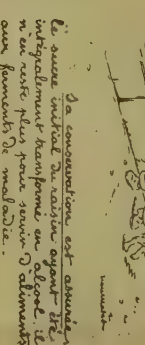 Sa conservation est assurée
le sucre initial du raisin ayant été
intégralement transformé en alcool il
n'en reste plus pour servir d'aliments
aux ferments de maladie.